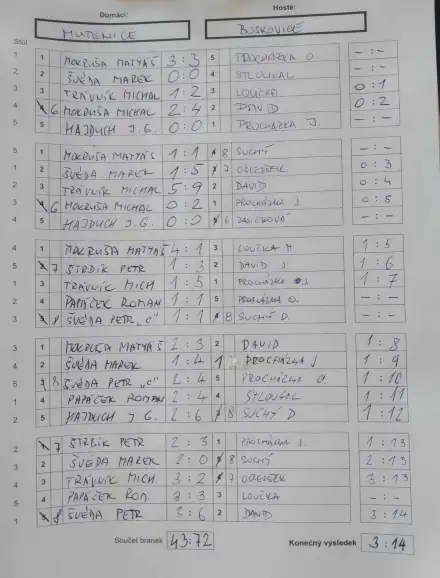 Domácí: Hosté:
MUTĚNICE BOSKOVICE
Stůl
1 1 MOKRUŠA MATYÁŠ 3:3 5 PROCHÁZKA O. -:-
2 2 ŠVÉDA MAREK 0:0 4 STLOUKAL -:-
3 3 TRÁVNÍK MICHAL 1:2 3 LOUČKA 0:1
4 6 MOKRUŠA MICHAL 2:4 2 DAVID 0:2
5 5 HAJDUCH J.G. 0:0 1 PROCHÁZKA J. -:-
5 1 MOKRUŠA MATYÁŠ 1:1 8 SUCHÝ -:-
1 2 ŠVÉDA MAREK 1:5 7 0:3
2 3 TRÁVNÍK MICHAL 5:9 2 DAVID 0:4
3 6 MOKRUŠA MICHAL 0:2 1 PROCHÁZKA J. 0:5
4 5 HAJDUCH J.G. 0:0 6 -:-
4 1 MOKRUŠA MATYÁŠ 4:1 3 LOUČKA M 1:5
5 7 STRBÍK PETR 1:3 2 DAVID J. 1:6
1 3 TRÁVNÍK MICH 1:5 1 PROCHÁZKA J. 1:7
2 4 PAPÁČEK ROMAN 1:1 5 PROCHÁZKA O. -:-
3 8 ŠVÉDA PETR "C" 1:1 8 SUCHÝ D. -:-
3 1 MOKRUŠA MATYÁŠ 2:3 2 DAVID 1:8
4 2 ŠVÉDA MAREK 1:4 1 PROCHÁZKA J 1:9
5 8 ŠVÉDA PETR "C" 2:4 5 PROCHÁZKA O. 1:10
1 4 PAPÁČEK ROMAN 2:4 4 STLOUKAL 1:11
2 5 HAJDUCH J G. 2:6 8 SUCHÝ D 1:12
2 7 STRBÍK PETR 2:3 1 PROCHÁZKA J. 1:13
3 2 ŠVÉDA MAREK 2:0 8 SUCHÝ 2:13
4 3 TRÁVNÍK MICH 3:2 7 3:13
5 4 PAPÁČEK ROM. 3:3 3 LOUČKA -:-
1 8 ŠVÉDA PETR 3:6 2 DAVID 3:14
Součet branek 43:72 Konečný výsledek 3:14